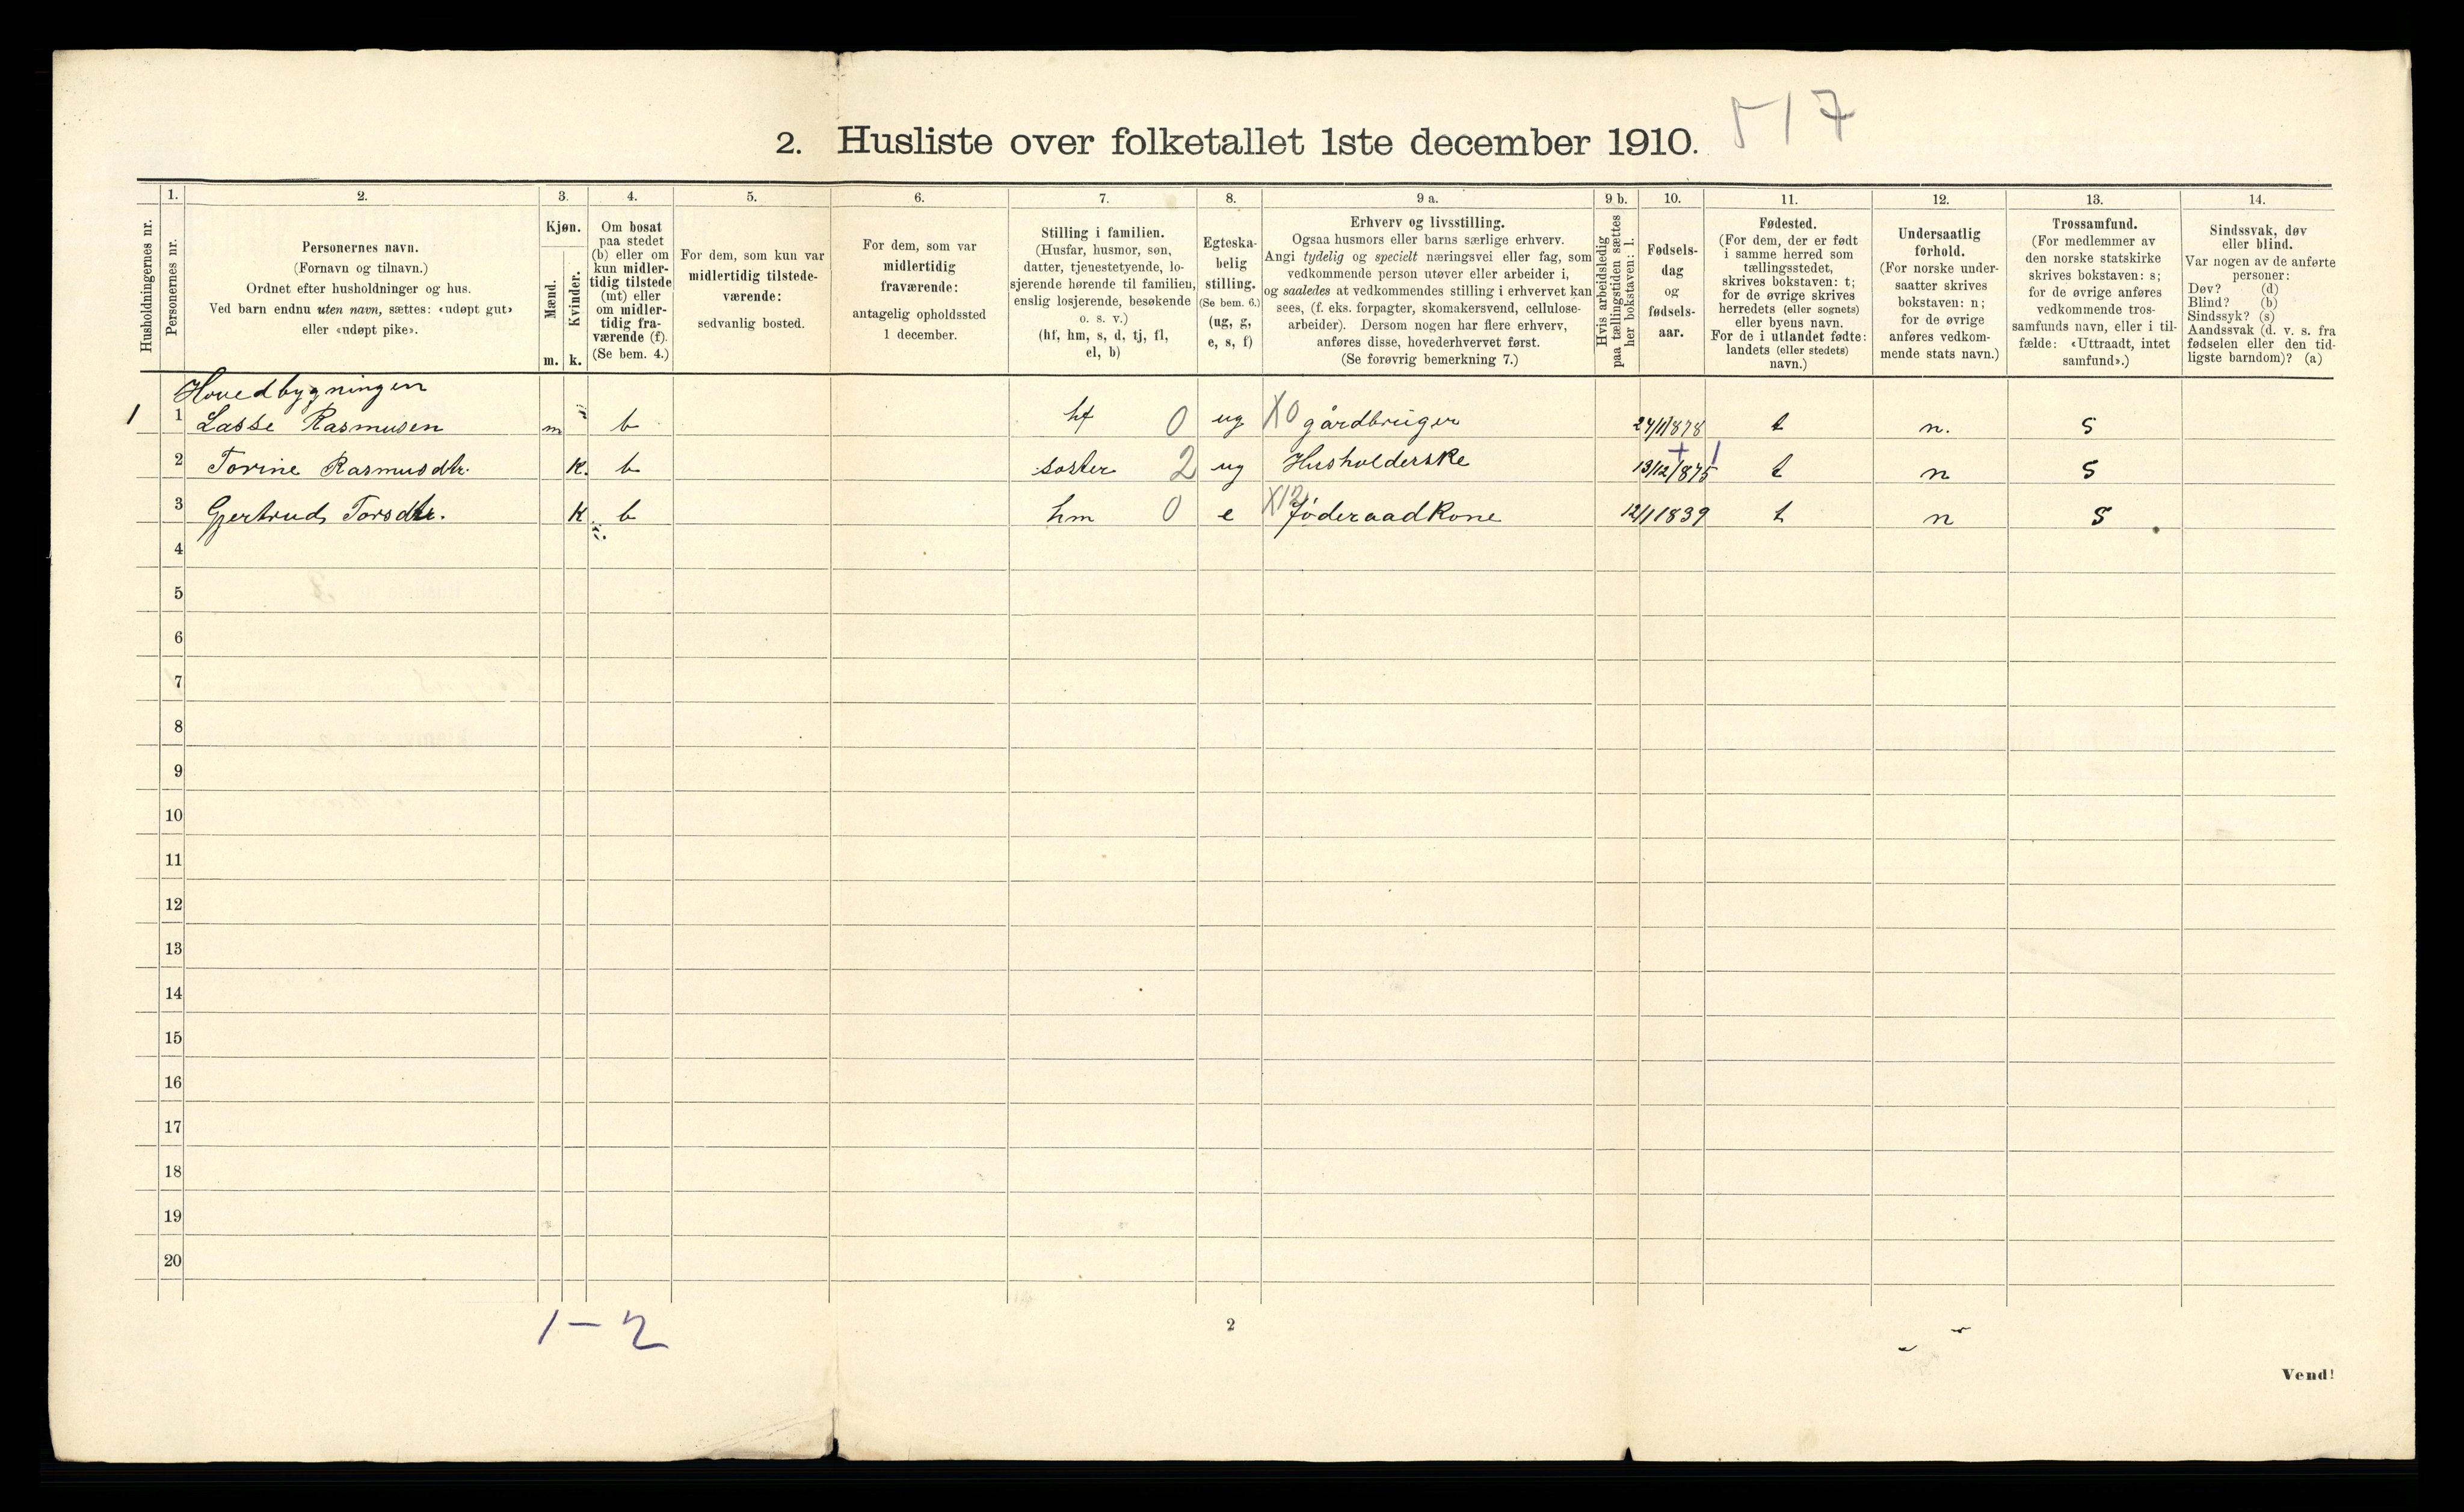 2. Husliste over folketallet 1ste december 1910.
517
Husholdningernes nr.
1.
Personernes nr.
2.
Personernes navn.
(Fornavn og tilnavn.)
Ordnet efter husholdninger og hus.
Ved barn endnu uten navn, sættes: «udøpt gut»
eller «udøpt pike».
3.
Kjøn.
Mænd.
Kvinder.
m. k.
4.
Om bosat
paa stedet
(b) eller om
kun midler-
tidig tilstede
(mt) eller
om midler-
tidig fra-
værende (f).
(Se bem. 4.)
5.
For dem, som kun var
midlertidig tilstede-
værende:
sedvanlig bosted.
6.
For dem, som var
midlertidig
fraværende:
antagelig opholdssted
1 december.
7.
Stilling i familien.
(Husfar, husmor, søn,
datter, tjenestetyende, lo-
sjerende hørende til familien,
enslig losjerende, besøkende
o. s. v.)
(hf, hm, s, d, tj, fl,
el, b)
8.
Egteska-
belig
stilling.
(Se bem. 6.)
(ug, g,
e, s, f)
9 a.
Erhverv og livsstilling.
Ogsaa husmors eller barns særlige erhverv.
Angi tydelig og specielt næringsvei eller fag, som
vedkommende person utøver eller arbeider i,
og saaledes at vedkommendes stilling i erhvervet kan
sees, (f. eks. forpagter, skomakersvend, cellulose-
arbeider). Dersom nogen har flere erhverv,
anføres disse, hovederhvervet først.
(Se forøvrig bemerkning 7.)
9 b.
Hvis arbeidsledig
paa tællingstiden sættes
her bokstaven: l.
10.
Fødsels-
dag
og
fødsels-
aar.
11.
Fødested.
(For dem, der er født
i samme herred som
tællingsstedet,
skrives bokstaven: t;
for de øvrige skrives
herredets (eller sognets)
eller byens navn.
For de i utlandet fødte:
landets (eller stedets)
navn.)
12.
Undersaatlig
forhold.
(For norske under-
saatter skrives
bokstaven: n;
for de øvrige
anføres vedkom-
mende stats navn.)
13.
Trossamfund.
(For medlemmer av
den norske statskirke
skrives bokstaven: s;
for de øvrige anføres
vedkommende tros-
samfunds navn, eller i til-
fælde: «Uttraadt, intet
samfund».)
14.
Sindssvak, døv
eller blind.
Var nogen av de anførte
personer:
Døv? (d)
Blind? (b)
Sindssyk? (s)
Aandssvak (d. v. s. fra
fødselen eller den tid-
ligste barndom)? (a)
Hovedbygningen
1 1 Lasse Rasmusen m b hf 0 ug X0 gårdbruger 24/11878 t n. s
2 Torine Rasmusdtr. K. b søster 2 ug Husholderske 13/12/875 t n s
3 Gjertrud Torsdtr. K b hm 0 e X12 føderaadkone 12/11839 t n s
4
5
6
7
8
9
10
11
12
13
14
15
16
17
18
19
20
1-2
2
Vend!